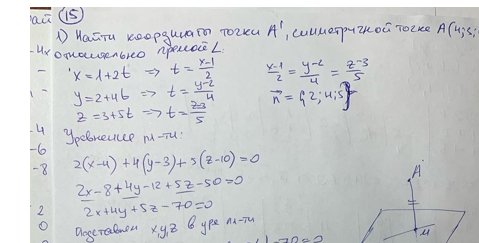 15
1) Найти координаты точки A', симметричной точке A(4;3;
относительно прямой L.
x=1+2t => t = x-1/2
y=2+4t => t = y-2/4
z=3+5t => t = z-3/5
x-1/2 = y-2/4 = z-3/5
n = {2;4;5}
Уравнение пл-ти:
2(x-4)+4(y-3)+5(z-10)=0
2x-8+4y-12+5z-50=0
2x+4y+5z-70=0
Подставим x,y,z в ур-е пл-ти
-70=0
A
M
-4x
-4
-6
-8
2
0
2